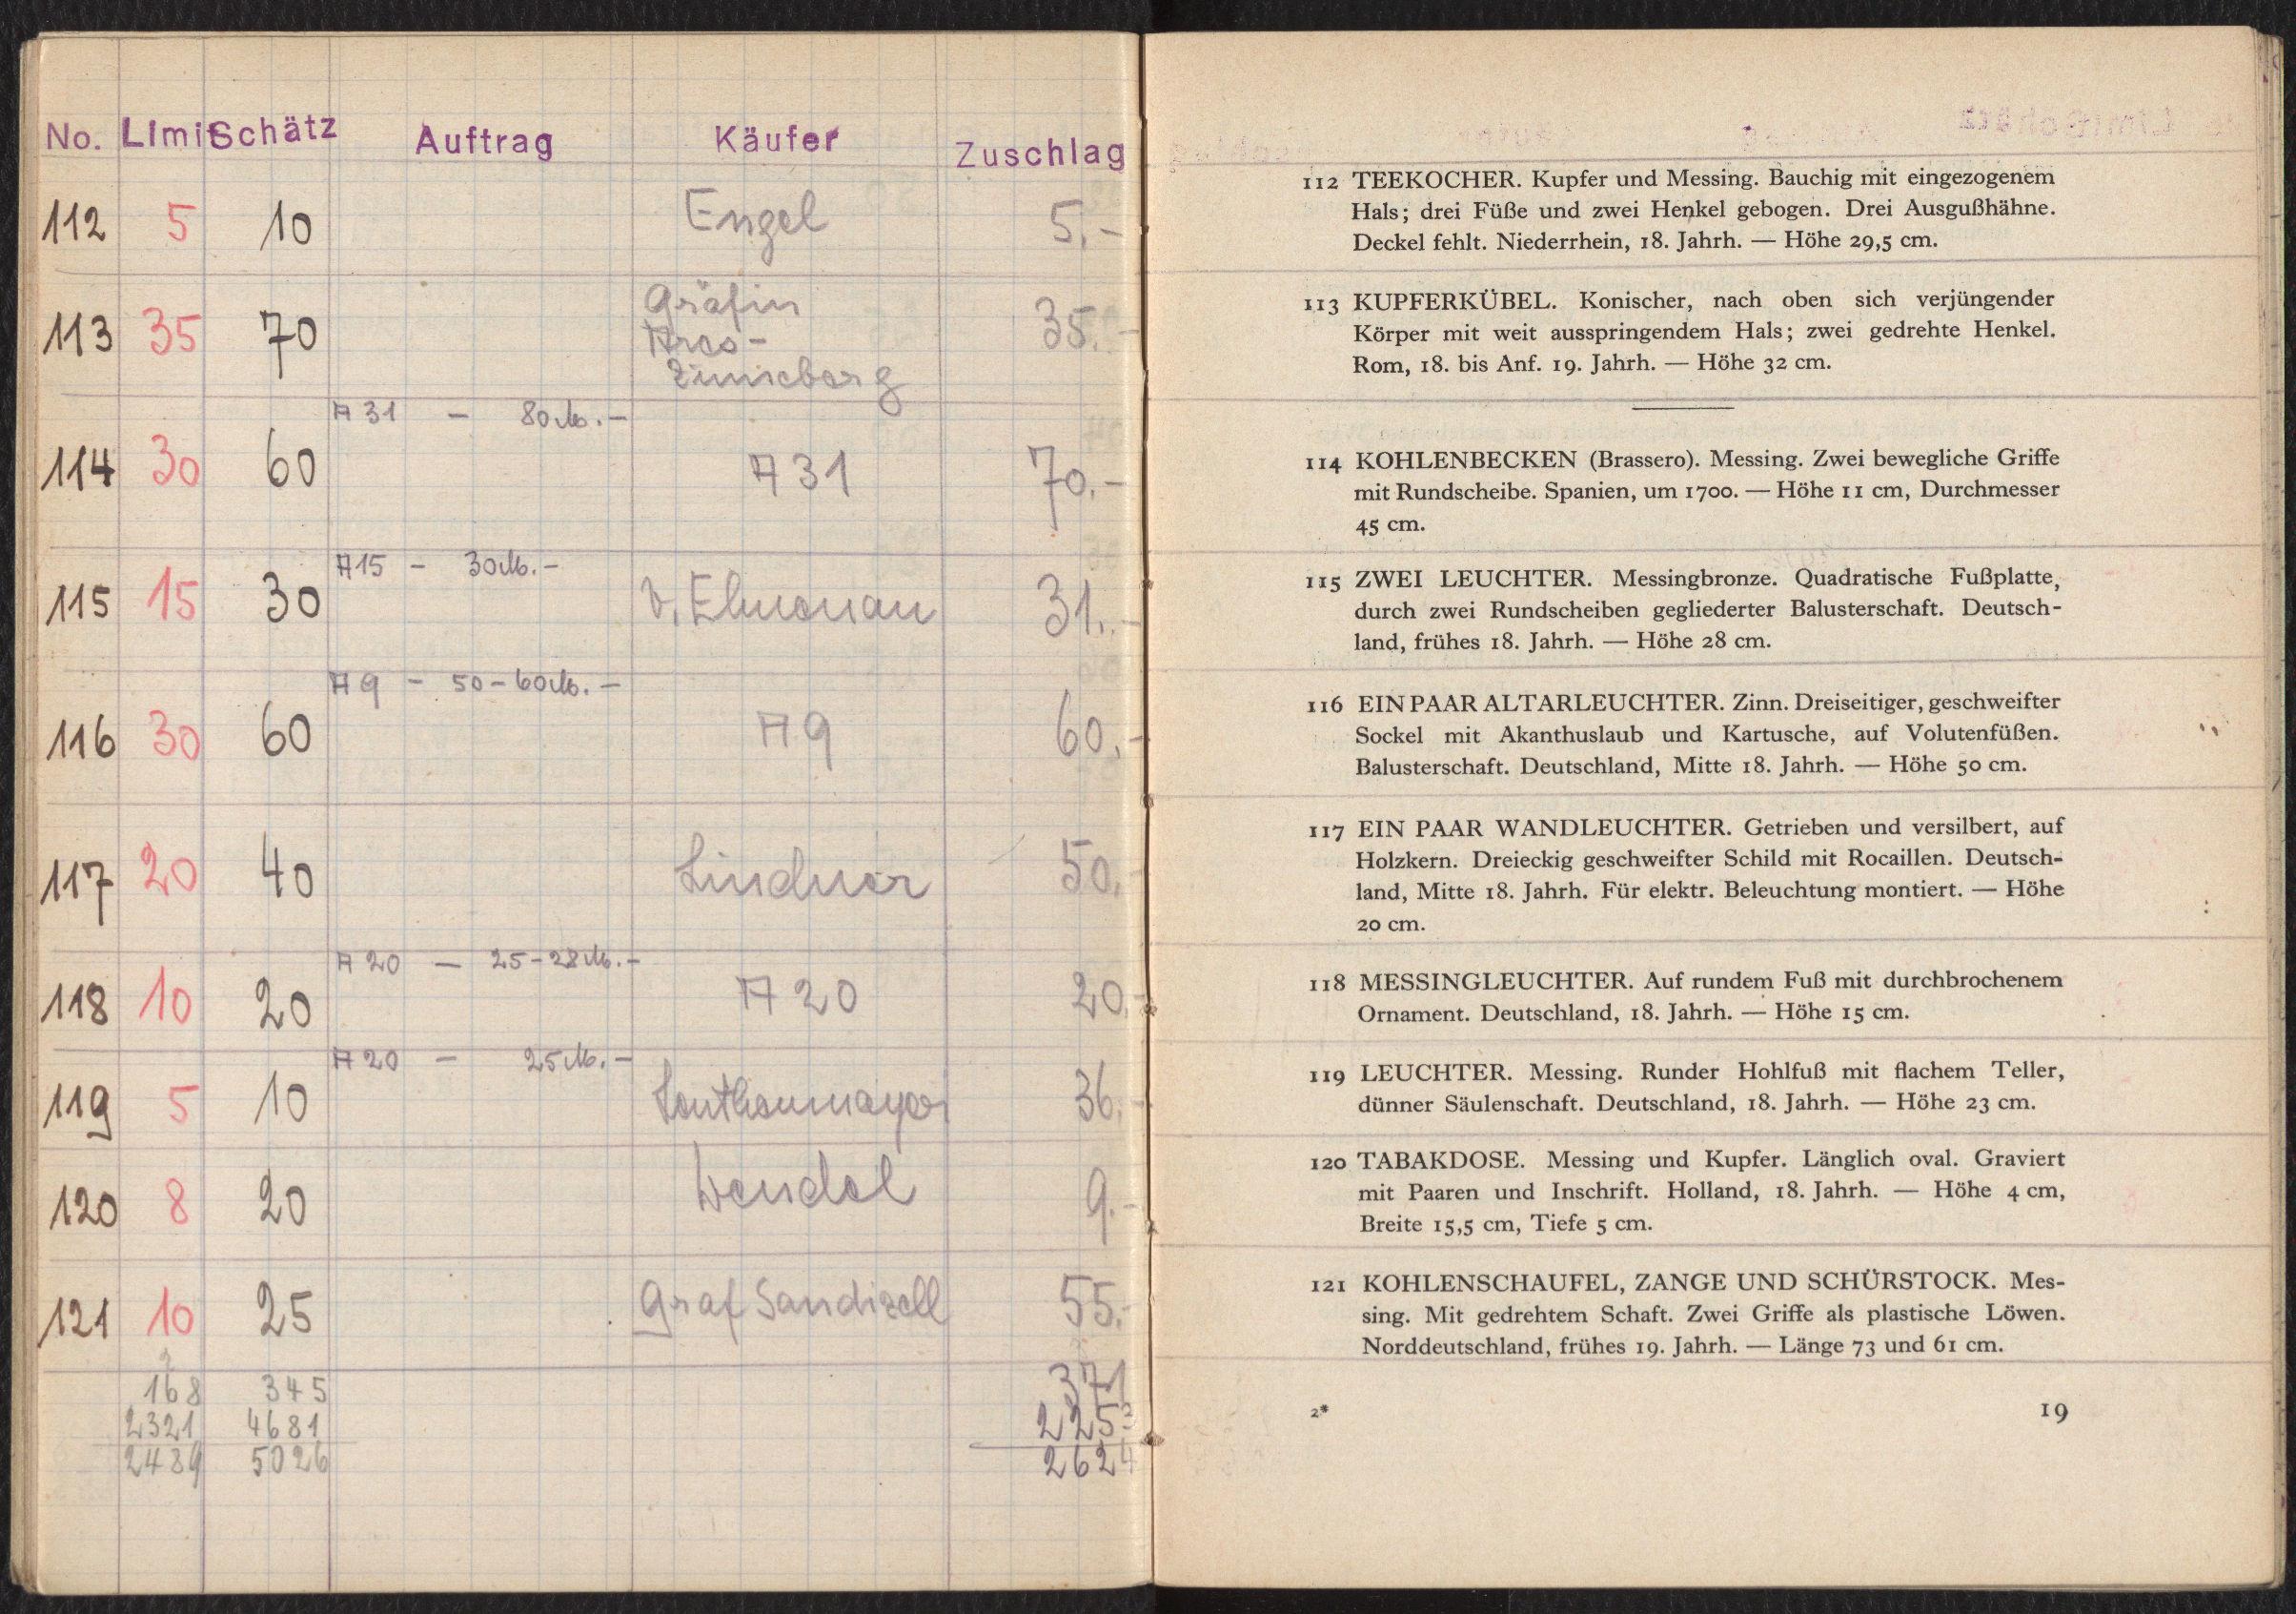 No. Limit Schätz Auftrag Käufer Zuschlag
112 5 10 Engel 5.-
113 35 70 Gräfin Arco- Zinneberg 35.-
A 31 - 80 M.-
114 30 60 A 31 70.-
A 15 - 30 M.-
115 15 30 v. Elmenau 31.-
A 9 - 50-60 M.-
116 30 60 A 9 60.-
117 20 40 Lindner 50.
A 20 - 25-28 M.-
118 10 20 A 20 20.-
A 20 - 25 M.-
119 5 10 36.-
120 8 20 Wendel 9.-
121 10 25 Graf Sandizell 55.-
168 345 371
2321 4681 2253
2489 5026 2624
112 TEEKOCHER. Kupfer und Messing. Bauchig mit eingezogenem
Hals; drei Füße und zwei Henkel gebogen. Drei Ausgußhähne.
Deckel fehlt. Niederrhein, 18. Jahrh. — Höhe 29,5 cm.
113 KUPFERKÜBEL. Konischer, nach oben sich verjüngender
Körper mit weit ausspringendem Hals; zwei gedrehte Henkel.
Rom, 18. bis Anf. 19. Jahrh. — Höhe 32 cm.
114 KOHLENBECKEN (Brassero). Messing. Zwei bewegliche Griffe
mit Rundscheibe. Spanien, um 1700. — Höhe 11 cm, Durchmesser
45 cm.
115 ZWEI LEUCHTER. Messingbronze. Quadratische Fußplatte,
durch zwei Rundscheiben gegliederter Balusterschaft. Deutsch-
land, frühes 18. Jahrh. — Höhe 28 cm.
116 EIN PAAR ALTARLEUCHTER. Zinn. Dreiseitiger, geschweifter
Sockel mit Akanthuslaub und Kartusche, auf Volutenfüßen.
Balusterschaft. Deutschland, Mitte 18. Jahrh. — Höhe 50 cm.
117 EIN PAAR WANDLEUCHTER. Getrieben und versilbert, auf
Holzkern. Dreieckig geschweifter Schild mit Rocaillen. Deutsch-
land, Mitte 18. Jahrh. Für elektr. Beleuchtung montiert. — Höhe
20 cm.
118 MESSINGLEUCHTER. Auf rundem Fuß mit durchbrochenem
Ornament. Deutschland, 18. Jahrh. — Höhe 15 cm.
119 LEUCHTER. Messing. Runder Hohlfuß mit flachem Teller,
dünner Säulenschaft. Deutschland, 18. Jahrh. — Höhe 23 cm.
120 TABAKDOSE. Messing und Kupfer. Länglich oval. Graviert
mit Paaren und Inschrift. Holland, 18. Jahrh. — Höhe 4 cm,
Breite 15,5 cm, Tiefe 5 cm.
121 KOHLENSCHAUFEL, ZANGE UND SCHÜRSTOCK. Mes-
sing. Mit gedrehtem Schaft. Zwei Griffe als plastische Löwen.
Norddeutschland, frühes 19. Jahrh. — Länge 73 und 61 cm.
2* 19